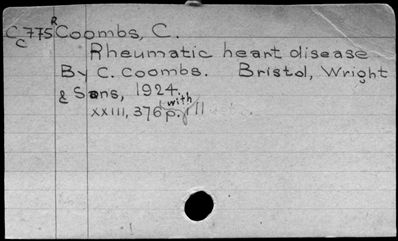 R
C 775 Coombs, C.
C
Rheumatic heart disease
By C. Coombs. Bristol, Wright
& Sons, 1924.
with
xxiii, 376 p. ill